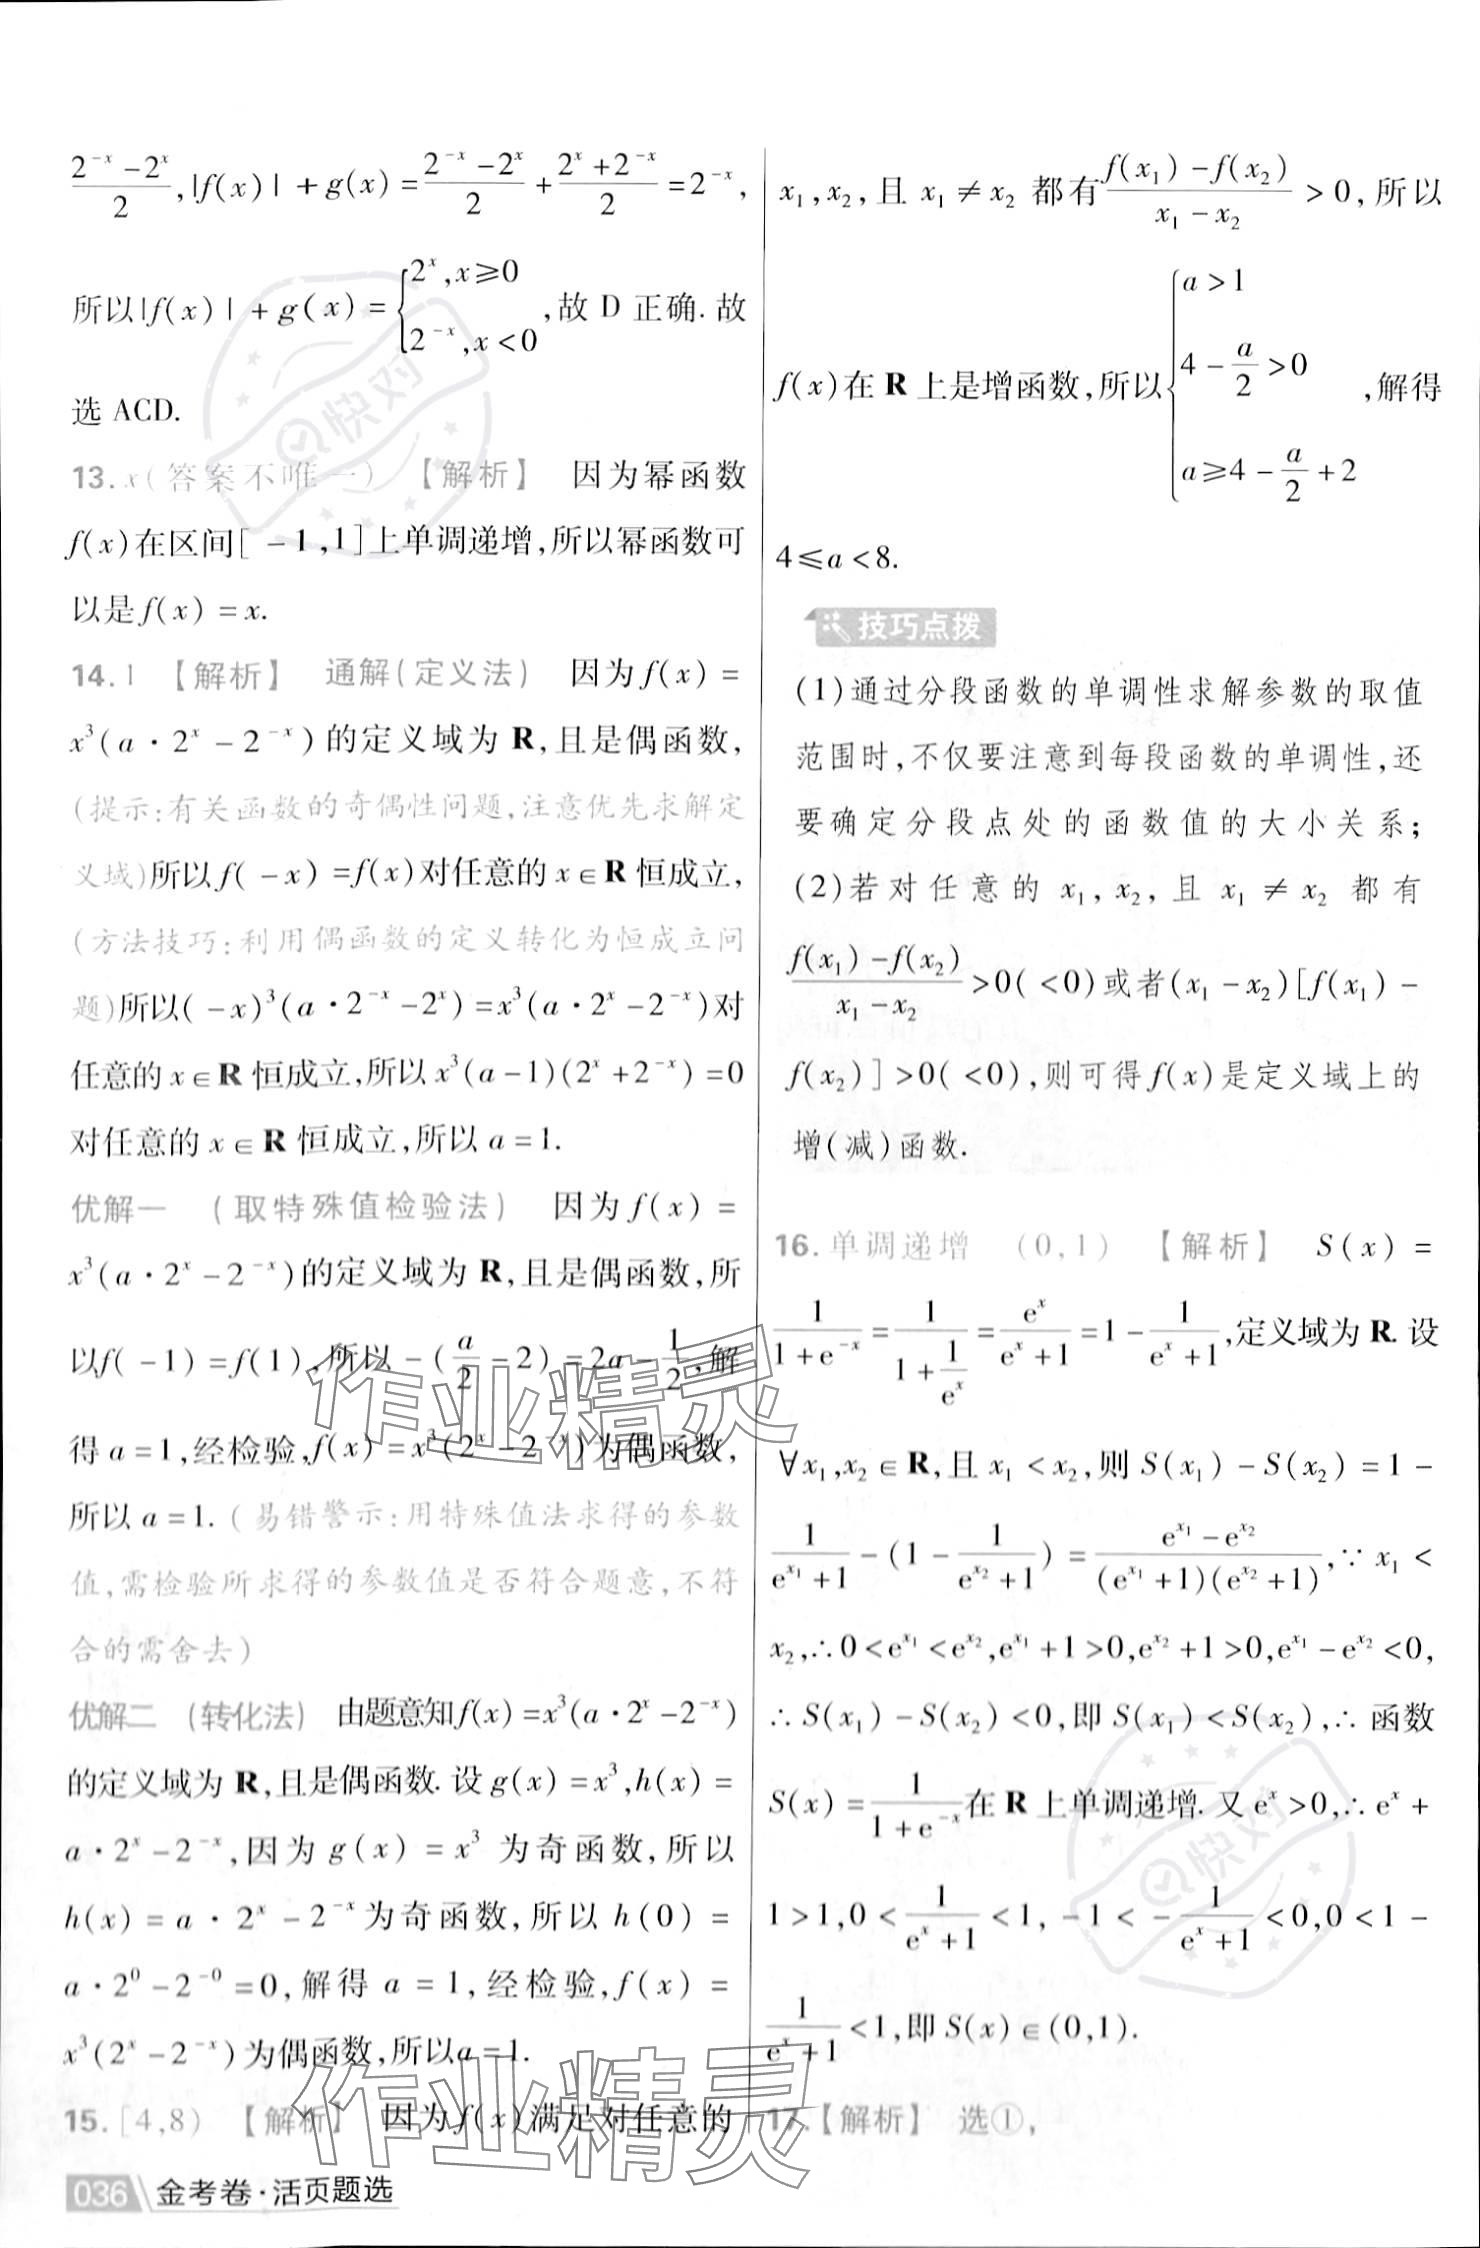 $\frac{2^{-x}-2^{x}}{2}$,|f(x)|+g(x)=$\frac{2^{-x}-2^{x}}{2}+\frac{2^{x}+2^{-x}}{2}=2^{-x}$,
所以|f(x)|+g(x)=$\begin{cases}2^{x},x\geqslant0\\2^{-x},x<0\end{cases}$,故 D 正确. 故
选 ACD.
13. x(答案不唯一) 【解析】 因为幂函数
f(x)在区间[-1,1]上单调递增,所以幂函数可
以是f(x)=x.
14. 1 【解析】 通解(定义法) 因为f(x)=
$x^{3}(a·2^{x}-2^{-x})$的定义域为 R,且是偶函数,
(提示:有关函数的奇偶性问题,注意优先求解定
义域)所以f(-x)=f(x)对任意的x∈R恒成立,
(方法技巧:利用偶函数的定义转化为恒成立问
题)所以$(-x)^{3}(a·2^{-x}-2^{x})=x^{3}(a·2^{x}-2^{-x})$对
任意的x∈R恒成立,所以$x^{3}(a-1)(2^{x}+2^{-x})=0$
对任意的x∈R恒成立,所以a=1.
优解一 (取特殊值检验法) 因为f(x)=
$x^{3}(a·2^{x}-2^{-x})$的定义域为 R,且是偶函数,所
以f(-1)=f(1),所以$-(\frac{a}{2}-2)=2a-\frac{1}{2}$,解
得a=1,经检验,$f(x)=x^{3}(2^{x}-2^{-x})$为偶函数,
所以a=1. (易错警示:用特殊值法求得的参数
值,需检验所求得的参数值是否符合题意,不符
合的需舍去)
优解二 (转化法) 由题意知$f(x)=x^{3}(a·2^{x}-2^{-x})$
的定义域为 R,且是偶函数. 设$g(x)=x^{3}$,h(x)=
$a·2^{x}-2^{-x}$,因为$g(x)=x^{3}$ 为奇函数,所以
$h(x)=a·2^{x}-2^{-x}$为奇函数,所以h(0)=
$a·2^{0}-2^{-0}=0$,解得a=1,经检验,f(x)=
$x^{3}(2^{x}-2^{-x})$为偶函数,所以a=1.
15. [4,8) 【解析】 因为f(x)满足对任意的
036 金考卷·活页题选
$x_{1},x_{2}$,且$x_{1}≠x_{2}$都有$\frac{f(x_{1})-f(x_{2})}{x_{1}-x_{2}}>0$,所以
f(x)在 R 上是增函数,所以$\begin{cases}a>1\\4-\frac{a}{2}>0\\a\geqslant4-\frac{a}{2}+2\end{cases}$,解得
4≤a<8.
技巧点拨
(1)通过分段函数的单调性求解参数的取值
范围时,不仅要注意到每段函数的单调性,还
要确定分段点处的函数值的大小关系;
(2)若对任意的 $x_{1},x_{2}$,且 $x_{1}≠x_{2}$ 都有
$\frac{f(x_{1})-f(x_{2})}{x_{1}-x_{2}}$>0(<0)或者$(x_{1}-x_{2})[f(x_{1})-$
$f(x_{2})]$>0(<0),则可得f(x)是定义域上的
增(减)函数.
16. 单调递增 (0,1) 【解析】 S(x)=
$\frac{1}{1+e^{-x}}=\frac{1}{1+\frac{1}{e^{x}}}=\frac{e^{x}}{e^{x}+1}=1-\frac{1}{e^{x}+1}$,定义域为 R. 设
∀$x_{1},x_{2}$∈R,且$x_{1}<x_{2}$,则$S(x_{1})-S(x_{2})=1-$
$\frac{1}{e^{x_{1}}+1}-(1-\frac{1}{e^{x_{2}}+1})=\frac{e^{x_{1}}-e^{x_{2}}}{(e^{x_{1}}+1)(e^{x_{2}}+1)}$,∵$x_{1}<$
$x_{2}$,∴$0<e^{x_{1}}<e^{x_{2}}$,$e^{x_{1}}+1>0$,$e^{x_{2}}+1>0$,$e^{x_{1}}-e^{x_{2}}<0$,
∴$S(x_{1})-S(x_{2})<0$,即$S(x_{1})<S(x_{2})$,∴函数
$S(x)=\frac{1}{1+e^{-x}}$在 R 上单调递增. 又$e^{x}>0$,∴$e^{x}+$
1>1,$0<\frac{1}{e^{x}+1}<1$,$-1<-\frac{1}{e^{x}+1}<0$,0<1-
$\frac{1}{e^{x}+1}<1$,即S(x)∈(0,1).
17. 【解析】 选①,
快对
快对
作业精灵
作业精灵